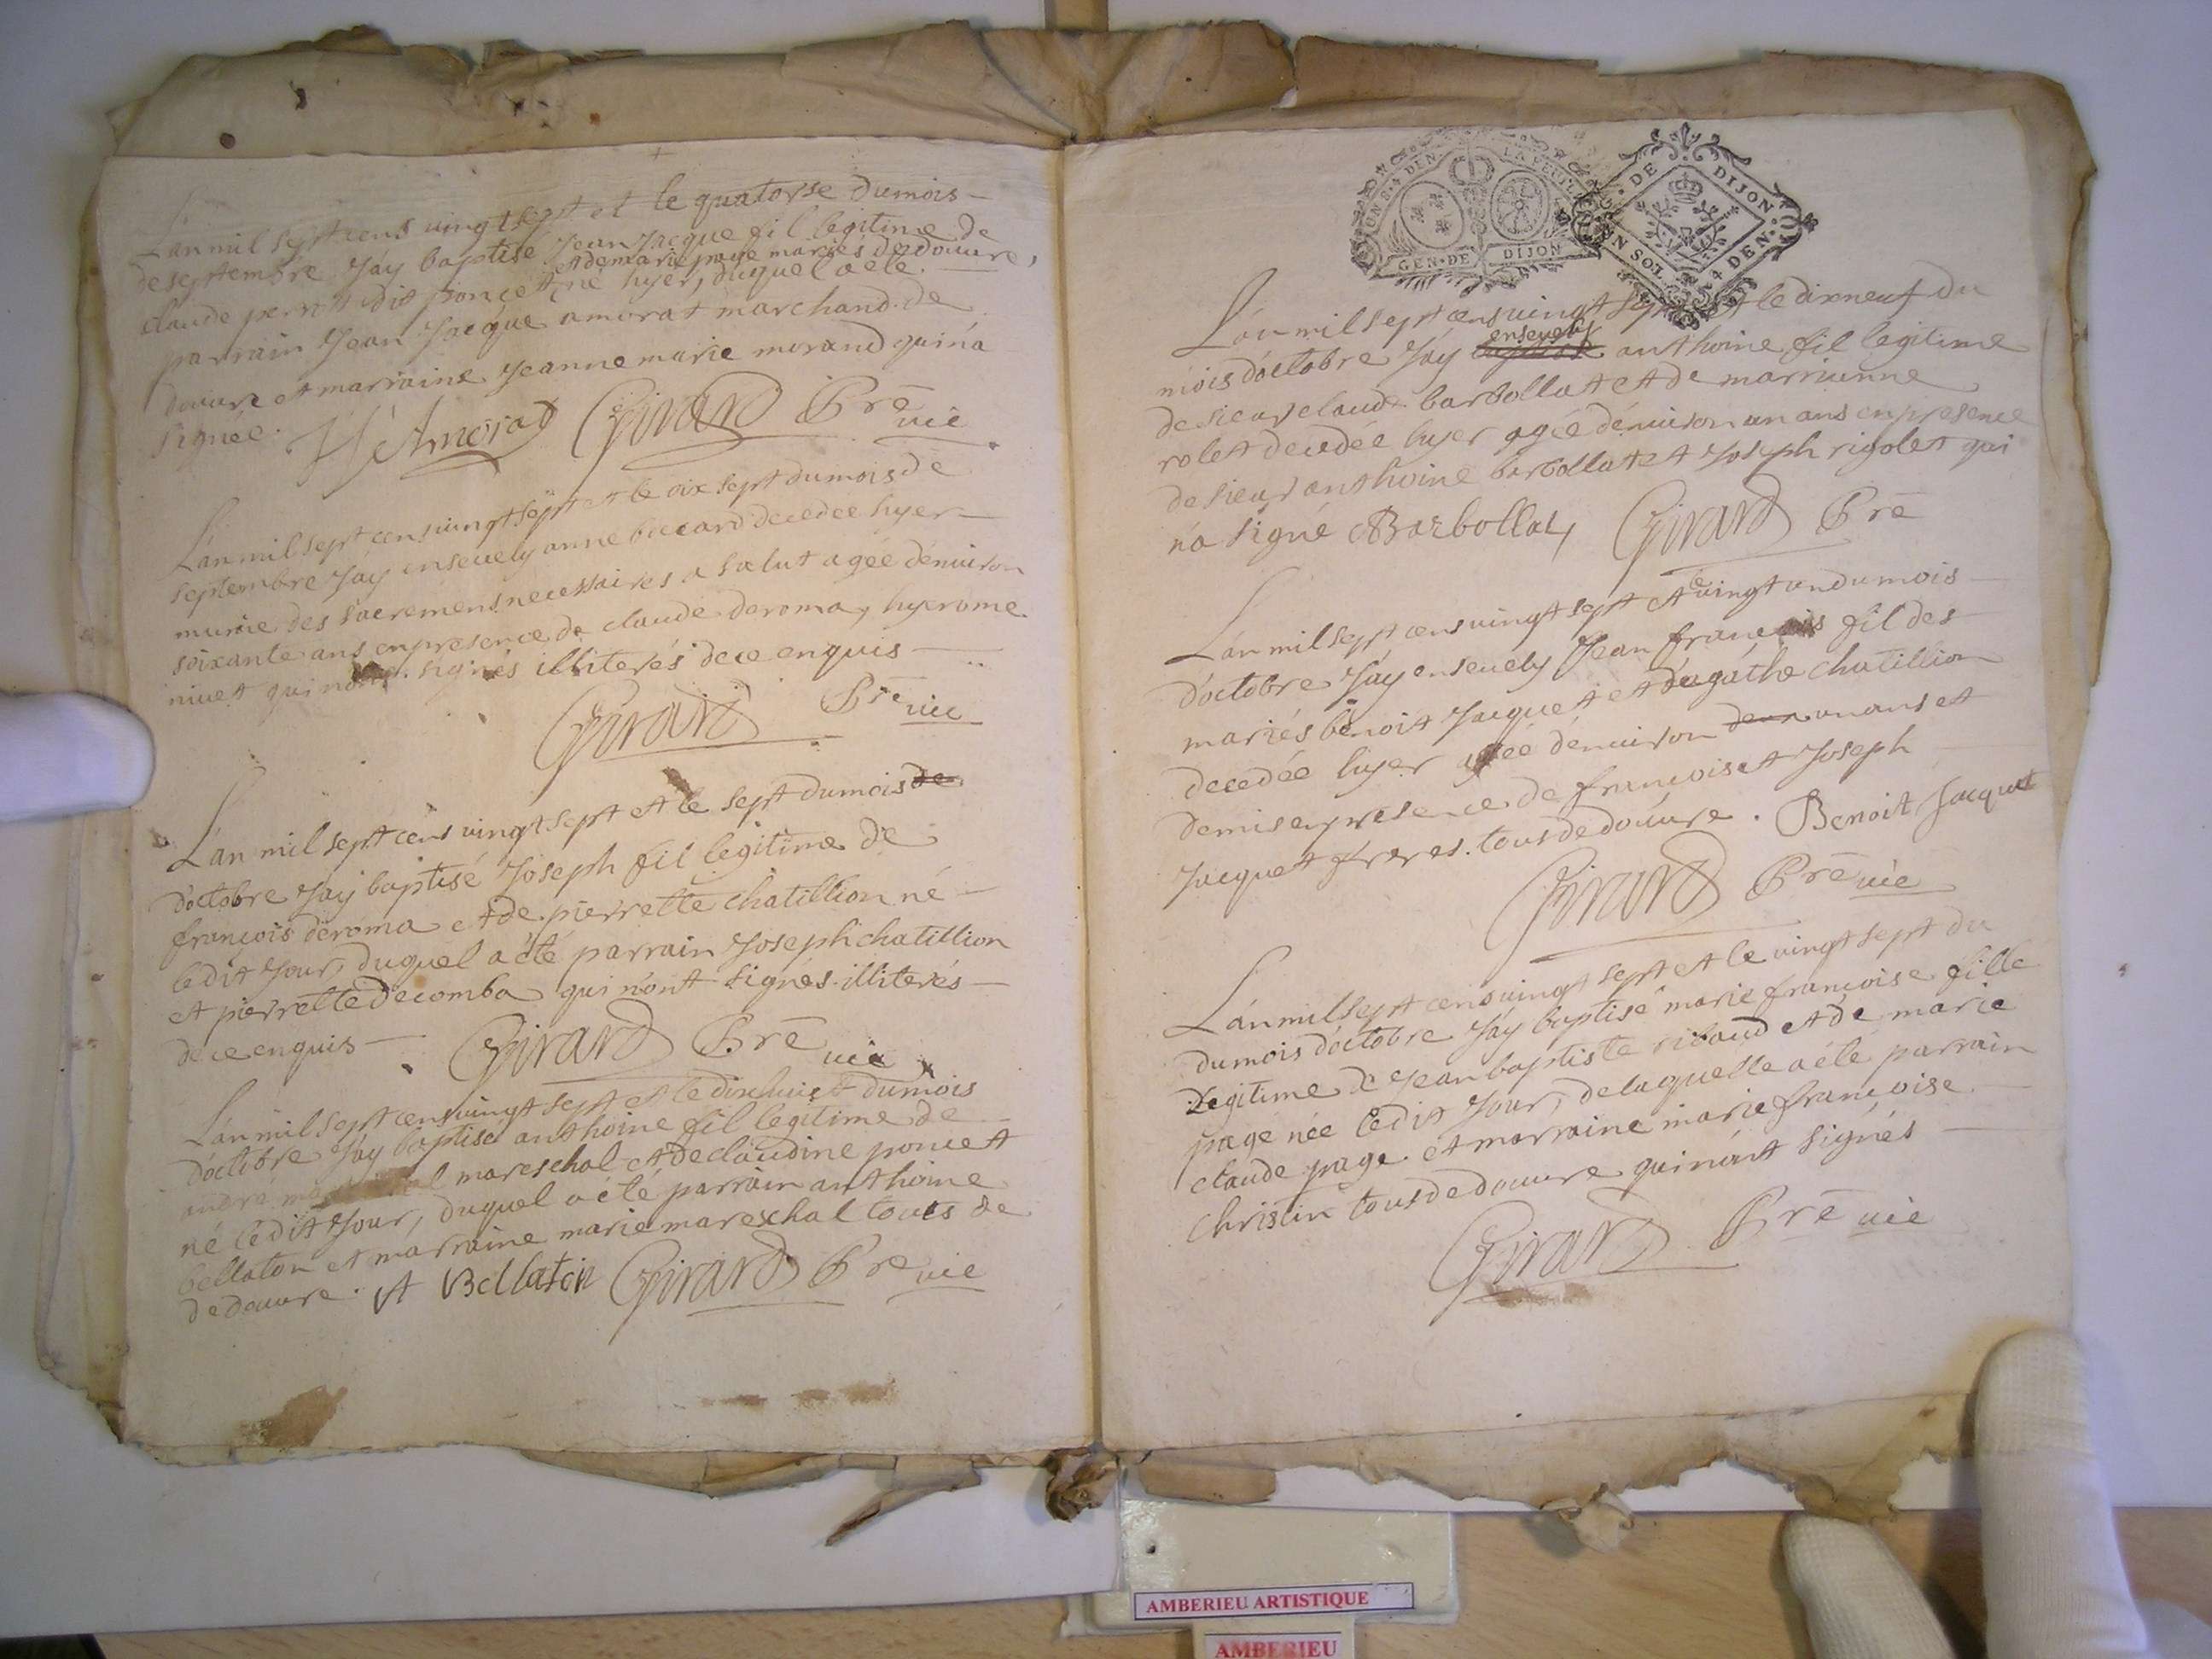 L'an mil sept cens vingt sept et le quatorse du mois
de septembre J'ay baptisé Jean Jacque fil legitime de
et de marie page mariés de douvre,
claude perrot dit poncet né hyer, duquel a été
parrain Jean Jacque amorat marchand de
douvre et marraine Jeanne marie morand qui n'a
signée. Amorat Girard Pre vic
L'an mil sept cens vingt sept et le dix sept du mois de
septembre J'ay ensevely anne decedée hyer
munie des sacremens necessaires a salut agée d'environ
soixante ans en presence de claude deroma, hyerome
nivet qui signés illiterés de ce enquis
Girard Pre vic
L'an mil sept cens vingt sept et le sept du mois de
d'octobre J'ay baptisé Joseph fil legitime de
françois deroma et de pierrette chatillion né
ledit Jour, duquel a été parrain Joseph chatillion
et pierrette decomba qui n'ont signés illiterés
de ce enquis Girard Pre vic
L'an mil sept cens vingt sept et le dixhuict du mois
d'octobre J'ay baptisé anthoine fil legitime de
andré mareschal et de claudine poncet
né ledit Jour, duquel a été parrain anthoine
bellaton et marraine marie mareschal touts de
de douvre. A Bellaton Girard Pre vic
UN S. 4 DEN. LA FEUILLE
GEN. DE DIJON
G. DE DIJON
UN SOL 4 DEN.
L'an mil sept cens vingt sept et le dixneuf du
ensevely
mois d'octobre J'ay baptisé anthoine fil legitime
de sieur claude barbollat et de marrianne
rolet decedée hyer agée d'environ un ans en presence
de sieur anthoine barbollat et Joseph rigolet qui
n'a signé Barbollat Girard Pre
le
L'an mil sept cens vingt sept et vingt un du mois
d'octobre J'ay ensevely Jean françois fil des
mariés benoit Jacquet et d'agathe chatillion
decedée hyer agée d'environ deux un ans et
demis en presence de françois et Joseph
Jacquet freres. tous de douvre. Benoit Jacquet
Girard Pre vic
L'an mil sept cens vingt sept et le vingt sept du
du mois d'octobre J'ay baptisé marie françoise fille
legitime de Jean baptiste ribaud et de marie
page née ledit Jour, de laquelle a été parrain
claude page et marraine marie françoise
christin tous de douvre qui n'ont signés
Girard Pre vic
AMBERIEU ARTISTIQUE
AMBERIEU